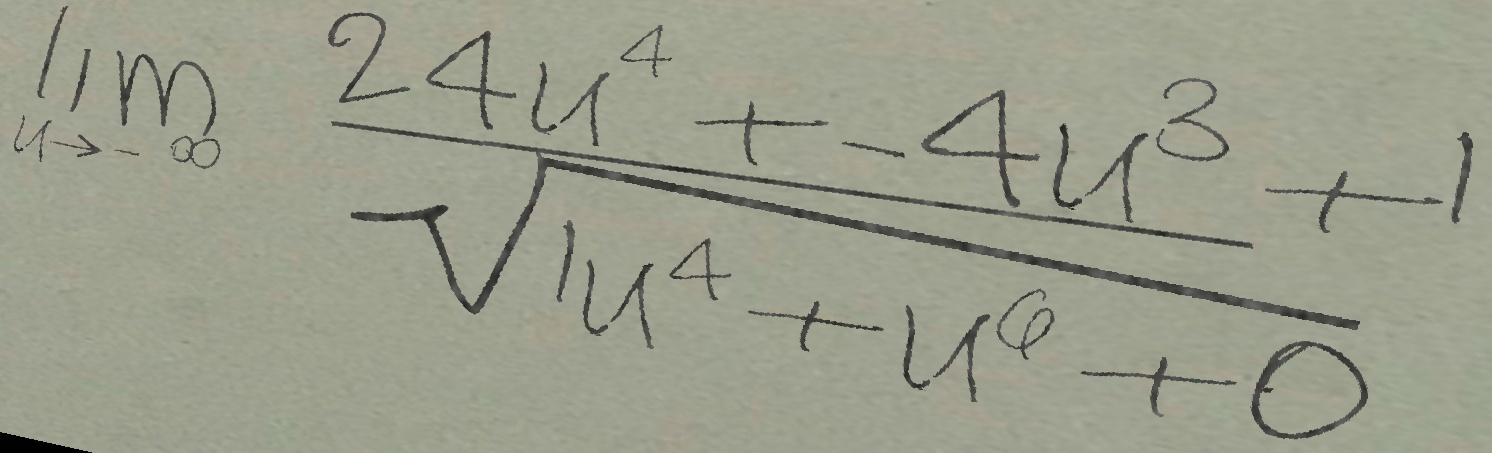 \lim_{u \to -\infty} \frac{24u^4 + -4u^3 + 1}{\sqrt{1u^4 + u^6 + 0}}